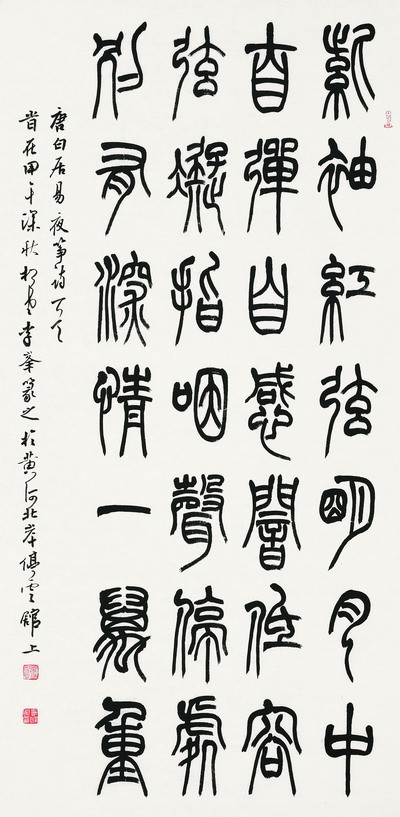 紫袖紅弦明月中
自彈自感闇低容
弦凝指咽聲停處
別有深情一萬重
唐白居易夜箏詩
旹在甲午深秋李峯篆之於黃河北岸雲館上